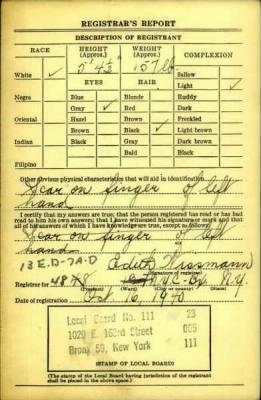 REGISTRAR'S REPORT
DESCRIPTION OF REGISTRANT
RACE HEIGHT (Approx.) WEIGHT (Approx.) COMPLEXION
White ✓ 5' 4½" 157 lb. Sallow
EYES HAIR Light ✓
Negro Blue Blonde Ruddy
Gray ✓ Red Dark
Oriental Hazel Brown ✓ Freckled
Brown Black Light brown
Indian Black Gray Dark brown
Bald Black
Filipino
Other obvious physical characteristics that will aid in identification
Scar on finger of left
hand
I certify that my answers are true; that the person registered has read or has had
read to him his own answers; that I have witnessed his signature or mark and that
all of his answers of which I have knowledge are true, except as follows:
Scar on finger of left
hand
13 E.D-7A.D Edith Wissmann
Registrar for 48 N.Y.C. Bx N.Y.
(Precinct) (Ward) (City or county) (State)
Date of registration Oct. 16, 1940
Local Board No. 111 23
1029 E. 163rd Street 005
Bronx 59, New York 111
(STAMP OF LOCAL BOARD)
(The stamp of the Local Board having jurisdiction of the registrant
shall be placed in the above space.)